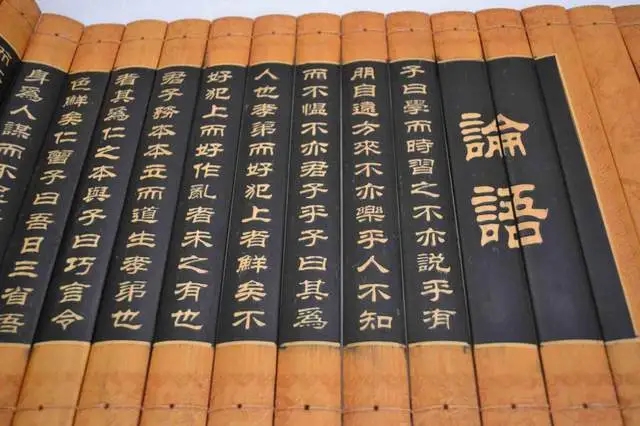 論語
子曰學而時習之不亦説乎有
朋自遠方來不亦樂乎人不知
而不愠不亦君子乎子曰其為
人也孝弟而好犯上者鮮矣不
好犯上而好作亂者未之有也
君子務本本立而道生孝弟也
者其為仁之本與子曰巧言令
色鮮矣仁曾子曰吾日三省吾
身為人謀而不